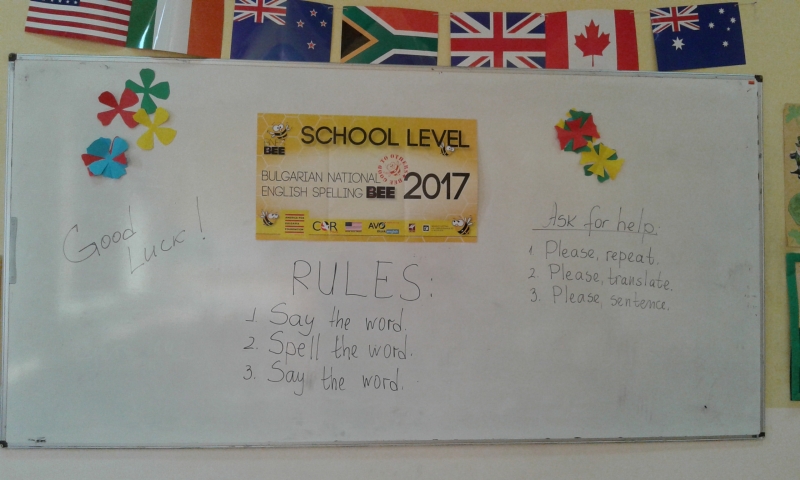 SCHOOL LEVEL
BEE
BULGARIAN NATIONAL
ENGLISH SPELLING BEE 2017
AVO
Good
Luck!
RULES:
1 Say the word.
2. Spell the word.
3. Say the word.
Ask for help:
1 Please, repeat.
2 Please, translate.
3. Please, sentence.